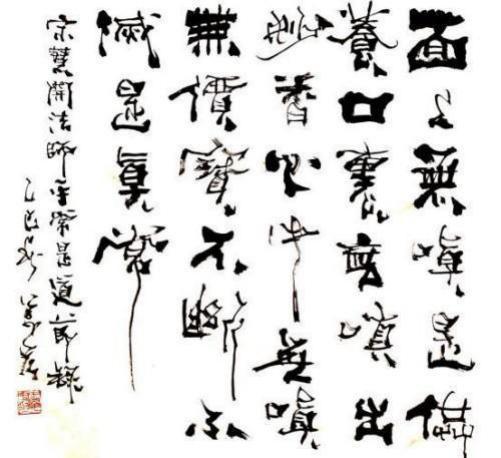 面上無嗔是供
養口裏無嗔出
妙香心中無嗔
無價寶不斷不
滅是真常
宋慧開法師平常是道